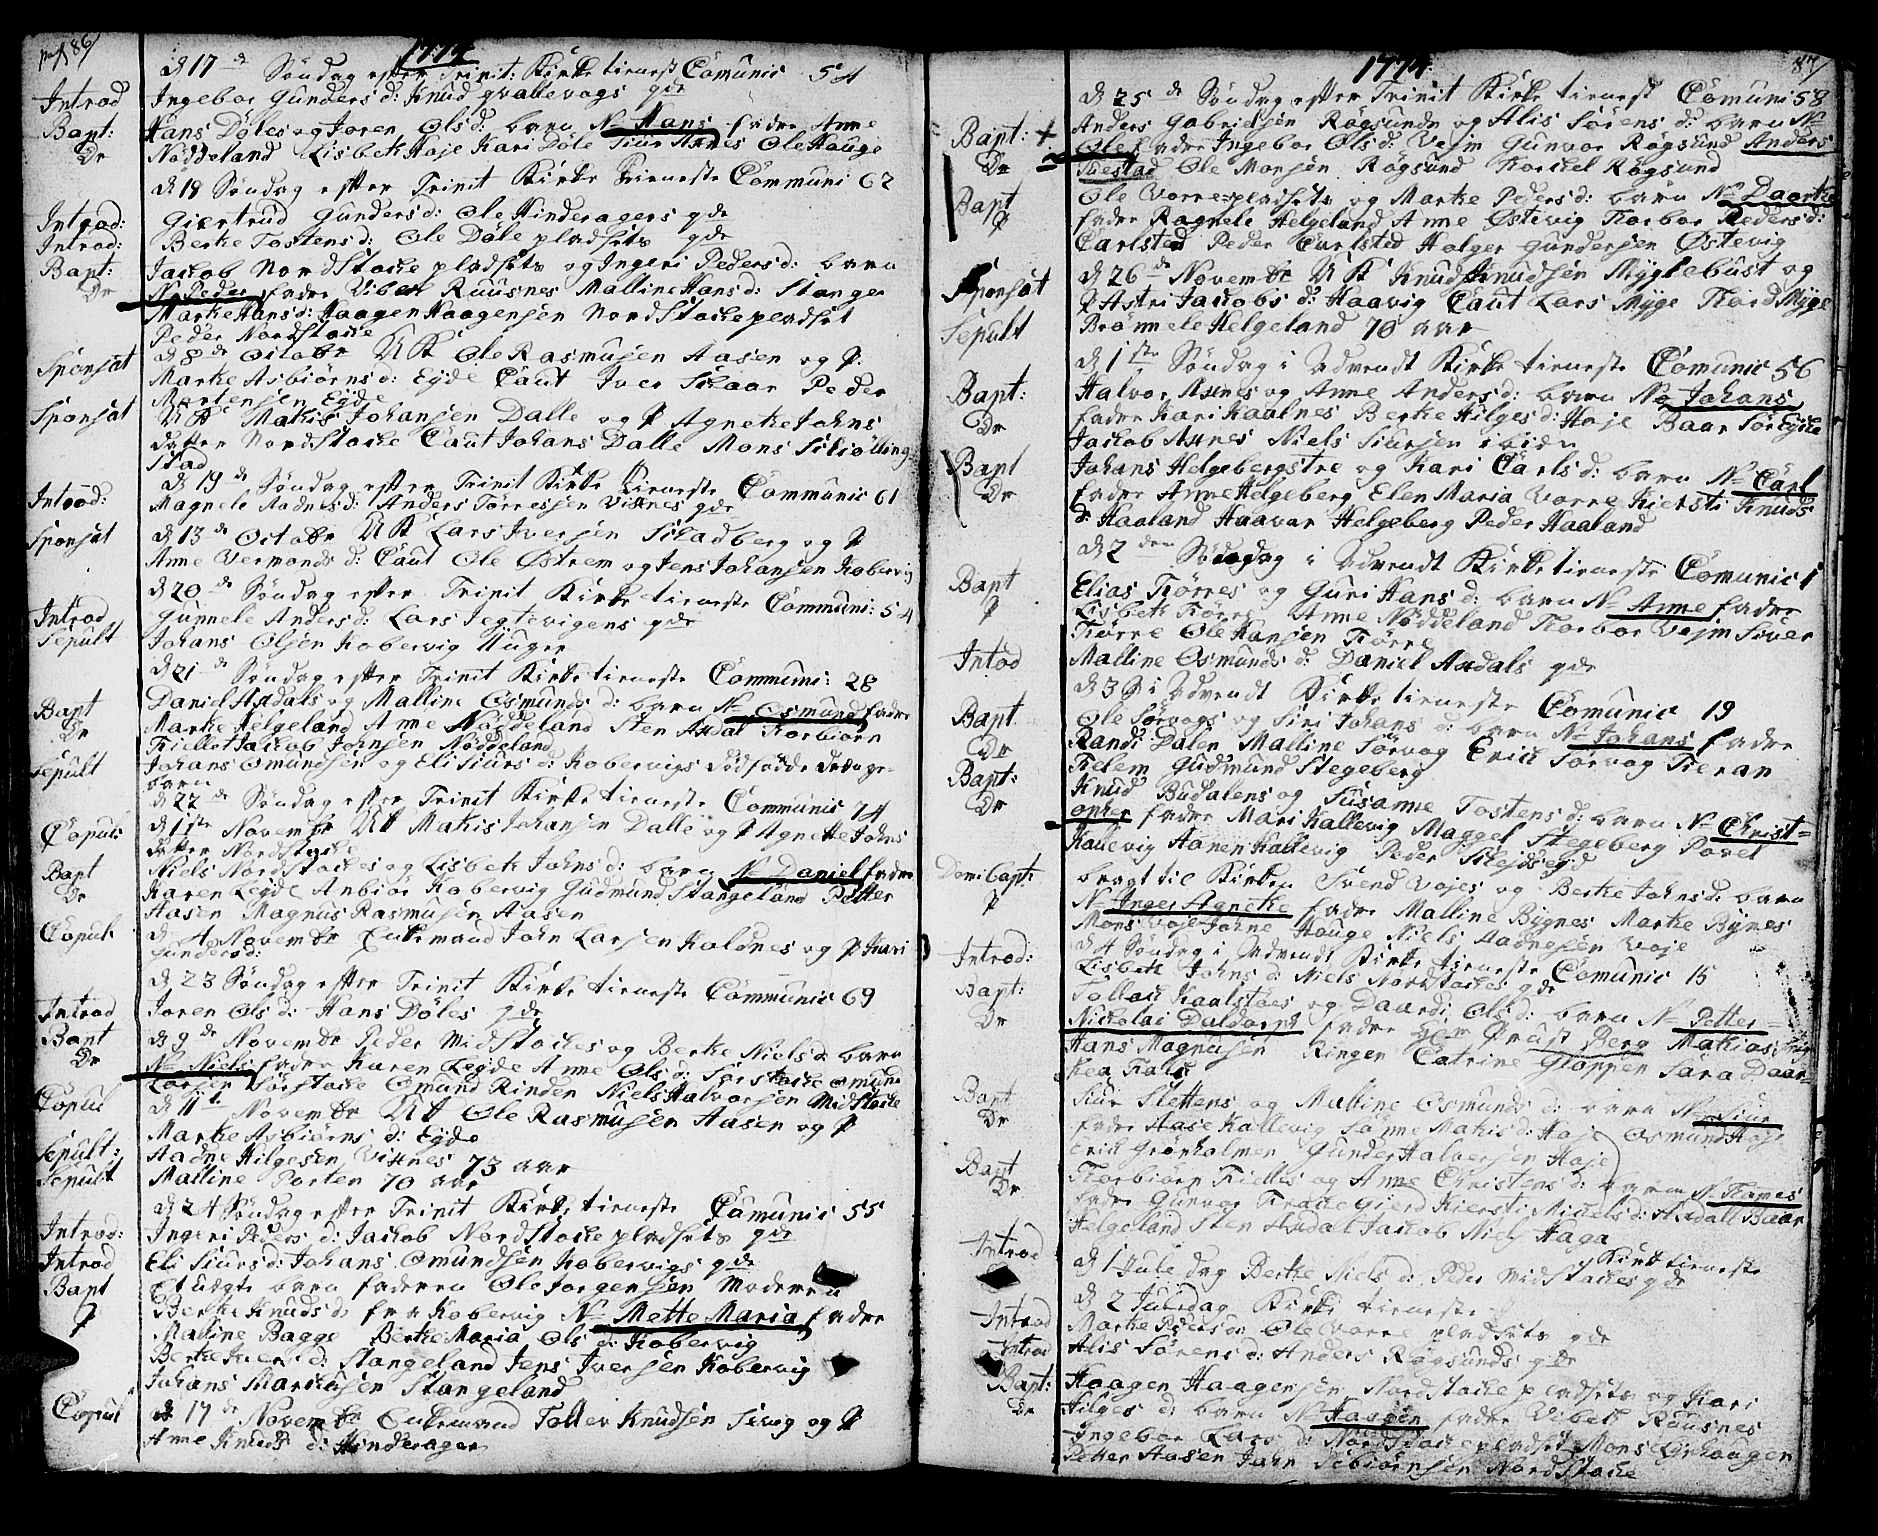 pag 86
1774
Introd
d 17de Søndag efter Trinit: Kirke tieneste Comunic 54
Ingebor Gunders d: Knud gvallevogs gde
Bapt: Dr
Hans Døles og Joren Ols d: barn No Hans fadre Anne
Nøddeland Lisbeth Haje Kari Døle Siur Ole Hauge
d 18 Søndag efter Trinit Kirke tieneste Communi 62
Introd:
Giertrud Gunders d: Ole Hinderagers gde
Introd:
Berthe Tostens d: Ole Døle pladsets gde
Bapt: Dr
Jacob Nordstocke pladsets og Ingeri Peders d: barn
No Peder fadre Vibet Ruusnes Malline Hans d: Stange
Marthe Hans d: Haagen Haagensen Nordstocke pladset
Peder Nordstocke
Sponsat
d 8de Octobr UK Ole Rasmusen Aasen og P:
Marthe Asbiørns d: Eyde Caut Iver Skaar Peder
Mortensen Eyde
Sponsat
UK Mathis Johansen Dalle og P Agnethe Johns
datter Nordstocke Caut Johans Dalle Mons Skiølling
stad
d 19de Søndag efter Trinit Kirke tieneste Communic 61
Introd:
Magnele Aadnes d: Anders Tørressen Visnes gde
Sponsat
d 13de Octobr UK Lars Iversen Skadberg og P
Anne Vermonds d: Caut Ole Østrem og Jens Johansen Kobervig
d 20de Søndag efter Trinit Kirke tieneste Communi: 54
Introd
Gunnele Anders d: Lars Jegtevigens gde
Sepult
Johans Olsen Kobervig 11 uger
d 21de Søndag efter Trinit Kirke tieneste Communi: 28
Bapt Dr
Daniel Aadals og Malline Osmunds d: barn No Osmund fadre
Marthe Helgeland Anne Nøddeland Sten Aadal Torbiørn
Fielle Jacob Johnsen Nøddeland
Sepult
Johans Omundsen og Eli Siurs d: Kobervigs dødfødde drænge-
barn
d 22de Søndag efter Trinit Kirke tieneste Communic 24
Copul:
d 1ste Novembr UK Mathis Johansen Dalle og P Agnethe Johns
datter Nordstocke
Bapt Dr
Niels Nordstockes og Lisbeth Johns d: barn No Daniel fadre
Karen Eyde Anbiør Kobervig Gudmund Stangeland Petter
Aasen Magnus Rasmusen Aasen
Copul:
d 4 Novembr Enkemand John Larsen Koldnes og P Kari
Gunders d:
d 23 Søndag efter Trinit Kirke tieneste Communic 69
Introd
Joren Ols d: Hans Døles gde
Bapt Dr
d 9de Novembr Peder Midstockes og Berthe Niels d: barn
No Niels fadre Karen Eyde Anne Ols d: Sørstocke Omund
Larsen Sørstocke Omund Rinden Niels Halvorsen Midstocke
Copul
d 11te Novembr UK Ole Rasmusen Aasen og P
Marthe Asbiørns d: Eyde
Sepult:
Aadne Hilgesen Visnes 73 aar
Sepult
Malline Porten 70 aar
d 24 Søndag efter Trinit Kirke tieneste Comunic 55
Introd:
Ingeri Peders d: Jacob Nordstocke pladsets gde
Introd
Eli Siurs d: Johans Omundsen Kobervigs gde
Bapt P
Et uægte barn faderen Ole Jorgensen Moderen
Berthe Knuds d: fra Kobervig No Mette Maria fadre
Malline Bagge Berthe Maria Ols d: Kobervig
Berthe Ivers d: Stangeland Jens Iversen Kobervig
Johans Marcusen Stangeland
Copul
d 17de Novembr Enkemand Tollev Knudsen Sævig og P
Anne Knuds d: Hinderager
1774
87
d 25de Søndag efter Trinit Kirke tieneste Comuni 58
Bapt: Dr
Anders Gabrielsen Røgsunds og Alis Sørens d: barn No
Ole fadre Ingebor Ols d: Vejm Gunvor Røgsund Anders
Tiestad Ole Monsen Røgsund Torkel Røgsund
Bapt P
Ole Vorre pladsets og Marthe Peders d: barn No Daarthe
fadre Ragnele Helgeland Anne Østevig Torbor Peders d:
Carlsted Peder Carlsted Holger Gundersen Østevig
Sponsat
d 26de Novembr UK Knud Knudsen Myglebust og
P Astri Jacobs d: Haavig Caut Lars Myge Tord Myge
Sepult
Brønnele Helgeland 70 aar
d 1ste Søndag i Advendt Kirke tieneste Comunic 56
Bapt: Dr
Halvor Asnes og Anne Anders d: barn No Johans
fadre Kari Kaalnes Berthe Hilges d: Haje Baar Sør Eyde
Jacob Asnes Niels Siursen ibidn
Bapt Dr
Johans Helgebergstre og Kari Carls d: barn No Carl
fadre Anne Helgeberg Elen Maria Vorre Kiersti Knuds
d: Haaland Haavar Helgeberg Peder Haaland
d 2den Søndag i Advendt Kirke tieneste Comunic 1
Bapt P
Elias Tørres og Guri Hans d: barn No Anne fadre
Lisbeth Tørre Anne Nøddeland Torbor Vejm Siver
Tørre Ole Hansen Tørre
Introd
Malline Osmunds d: Daniel Aadals gde
d 3 S i Advendt Kirke tieneste Comunic 19
Bapt Dr
Ole Sørvogs og Siri Johans d: barn No Johans fadre
Randi Dalen Malline Sørvog Erick Sørvog Tieran
Tielem Gudmund Stegeberg
Bapt: Dr
Knud Budalens og Susanne Tostens d: barn No Christ=
opher fadre Mari Kallevig Maggel Stegeberg Povel
Kallevig Aanen Kallevig Peder
Domi Bapt: P
bragt til Kirken Svend Vojes og Berthe Johns d: barn
No Inger Agnethe fadre Malline Bygnes Marthe Bygnes
Mons Voje Johne Hauge Niels Aadnesen Voje
d 4 Søndag i Advendt Kirke tieneste Comunic 15
Introd:
Lisbeth Johns d: Niels Nordstockes gde
Bapt: Dr
Tollack Kaalstøes og Daardi Ols d: barn No Petter
Nickolai Daldorph fadre Hr Prast Berg Mathias
Hans Magnusen Ringen Catrine Gloppen Sara Daar-
thea Falck
Bapt Dr
Siur Slettens og Malline Osmunds d: barn No Siur
fadre Aase Kallevig Sønne Mathis d: Haje Osmund Haje
Erick Grønholmen Gunder Halversen Haje
Bapt Dr
Torbiørn Fielles og Anne Christens d: barn No Tomes
fadre Gunvor Gierd Kiersti Mickels d: Aadal Baar
Helgeland Sten Aadal Jacob Niels Haga
Introd
d 1 Jule dag Berthe Niels d: Peder Midstockes gde Kirke tieneste
d 2 Juledag Kirke tieneste
Introd
Marthe Peders d: Ole Vorre pladsets gde
Introd
Alis Sørens d: Anders Røgsunds gde
Bapt: Dr
Haagen Haagensen Nordstocke pladsets og Kari
Hilges d: barn No Haagen fadre Vibet Ruusnes
Ingebor Lars d: Nordstocke pladset Mons Lyhaagen
Petter Aasen John Sebiørnsen Nordstocke